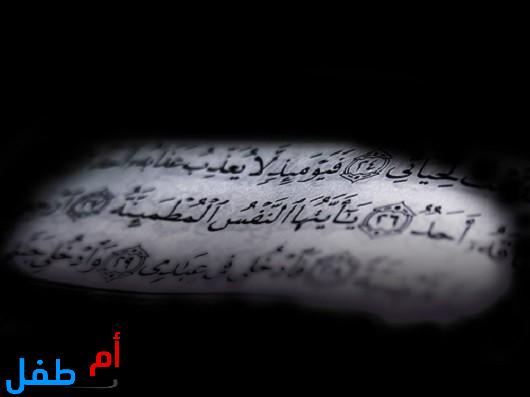 لِحَيَاتِي ٢٤ فَيَوْمَئِذٍ لَّا يُعَذِّبُ
أَحَدٌ ٢٦ يَٰٓأَيَّتُهَا ٱلنَّفْسُ ٱلْمُطْمَئِنَّةُ ٢٧
٢٨ فَٱدْخُلِي فِي عِبَٰدِي ٢٩ وَٱدْخُلِي
أم
طفل